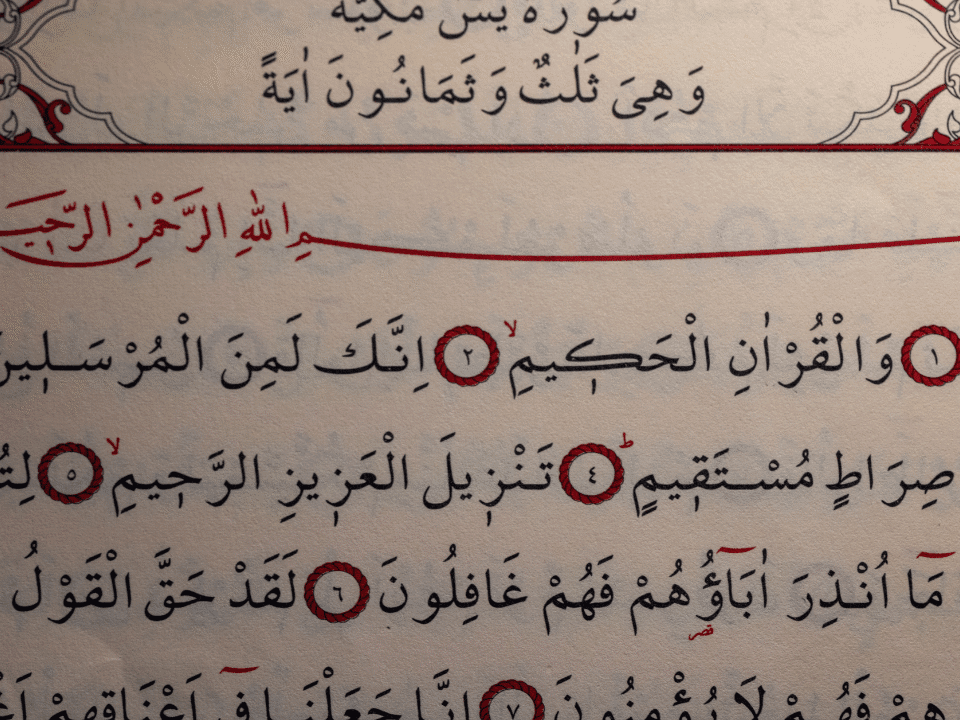 سُورَةُ يٰسٓ مَكِّيَّةٌ
وَهِىَ ثَلٰثٌ وَثَمَانُونَ اٰيَةً
اللّٰهِ الرَّحْمٰنِ
١ وَالْقُرْاٰنِ الْحَكٖيمِۙ ٢ اِنَّكَ لَمِنَ
صِرَاطٍ مُسْتَقٖيمٍۜ ٤ تَنْزٖيلَ الْعَزٖيزِ الرَّحٖيمِۙ ٥
مَٓا اُنْذِرَ اٰبَٓاؤُ۬هُمْ فَهُمْ غَافِلُونَ ٦ لَقَدْ حَقَّ الْقَوْلُ
فَهُمْ لَا يُؤْمِنُونَ ٧ اِنَّا جَعَلْنَا فٖٓى اَعْنَاقِهِمْ